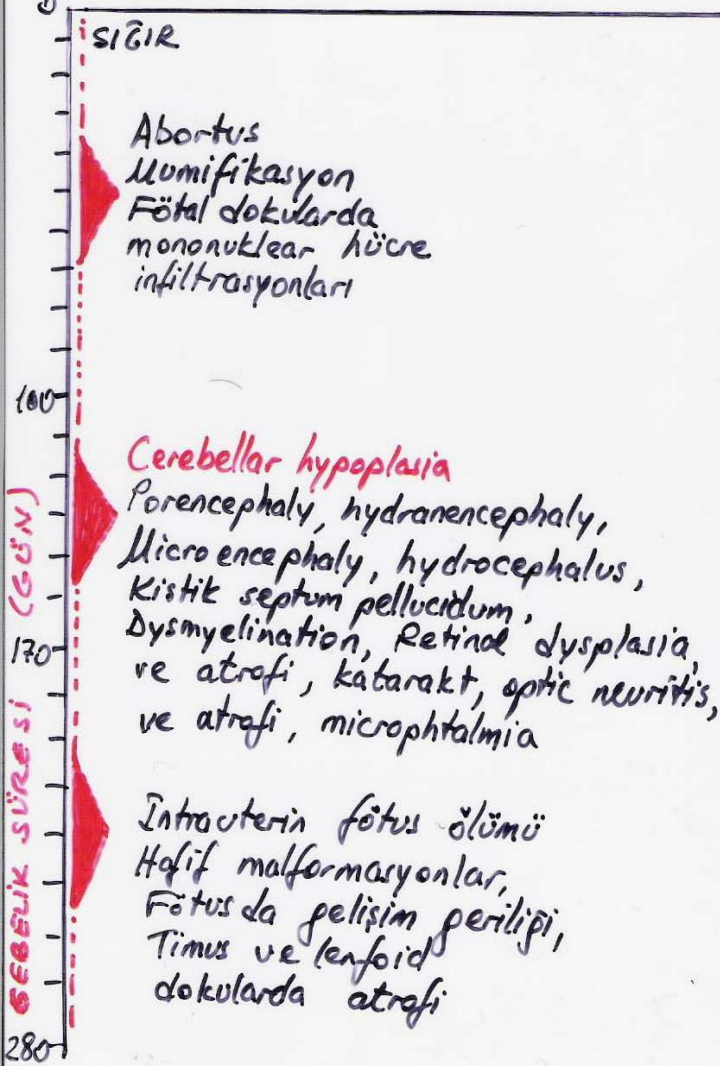 0
SIĞIR
Abortus
Mumifikasyon
Fötal dokularda
mononuklear hücre
infiltrasyonları
100
Cerebellar hypoplasia
Porencephaly, hydranencephaly,
Microencephaly, hydrocephalus,
Kistik septum pellucidum,
Dysmyelination, Retinal dysplasia,
ve atrofi, katarakt, optic neuritis,
ve atrofi, microphtalmia
170
GEBELİK SÜRESİ (GÜN)
Intrauterin fötus ölümü
Hafif malformasyonlar,
Fötusda gelişim geriliği,
Timus ve lenfoid
dokularda atrofi
280